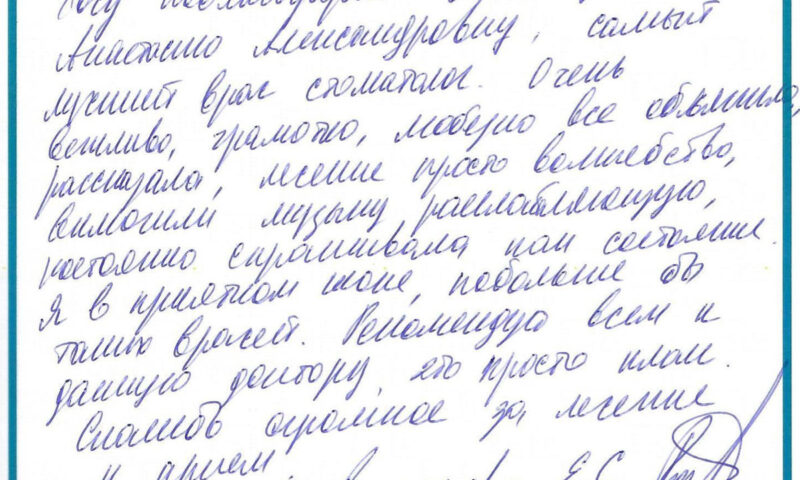 Анастасию Александровну, самый
лучший врач стоматолог. Очень
вежливо, грамотно, любезно все объяснила,
рассказала, лечение просто волшебство,
включили музыку расслабляющую,
постоянно спрашивала как состояние.
Я в приятном шоке, побольше бы
таких врачей. Рекомендую всем к
данному доктору, это просто клад.
Спасибо огромное за лечение
и прием
Е.С.